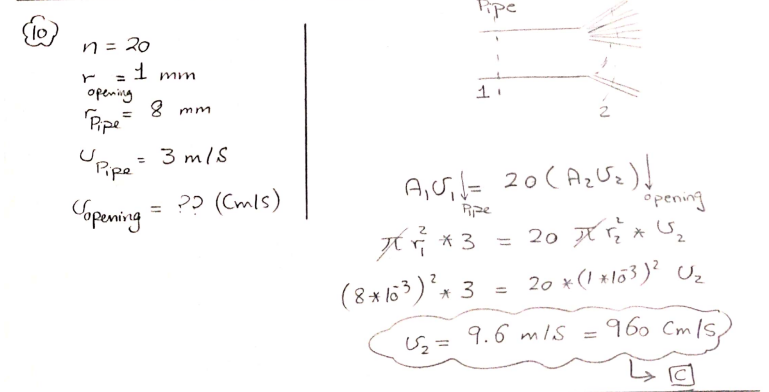 10
n = 20
r opening = 1 mm
r Pipe = 8 mm
υ Pipe = 3 m/s
υ opening = ?? (Cm/s)
Pipe
1
2
A₁υ₁↓ Pipe = 20 (A₂υ₂)↓ opening
π r₁² * 3 = 20 π r₂² * υ₂
(8*10⁻³)² * 3 = 20 * (1*10⁻³)² υ₂
υ₂ = 9.6 m/s = 960 Cm/s
↳ C